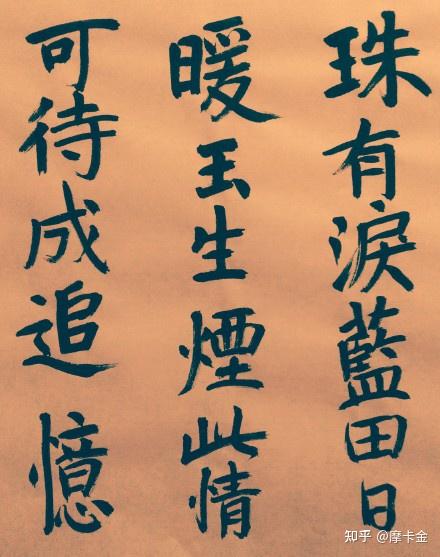 珠有淚藍田日
暖玉生煙此情
可待成追憶
知乎 @摩卡金